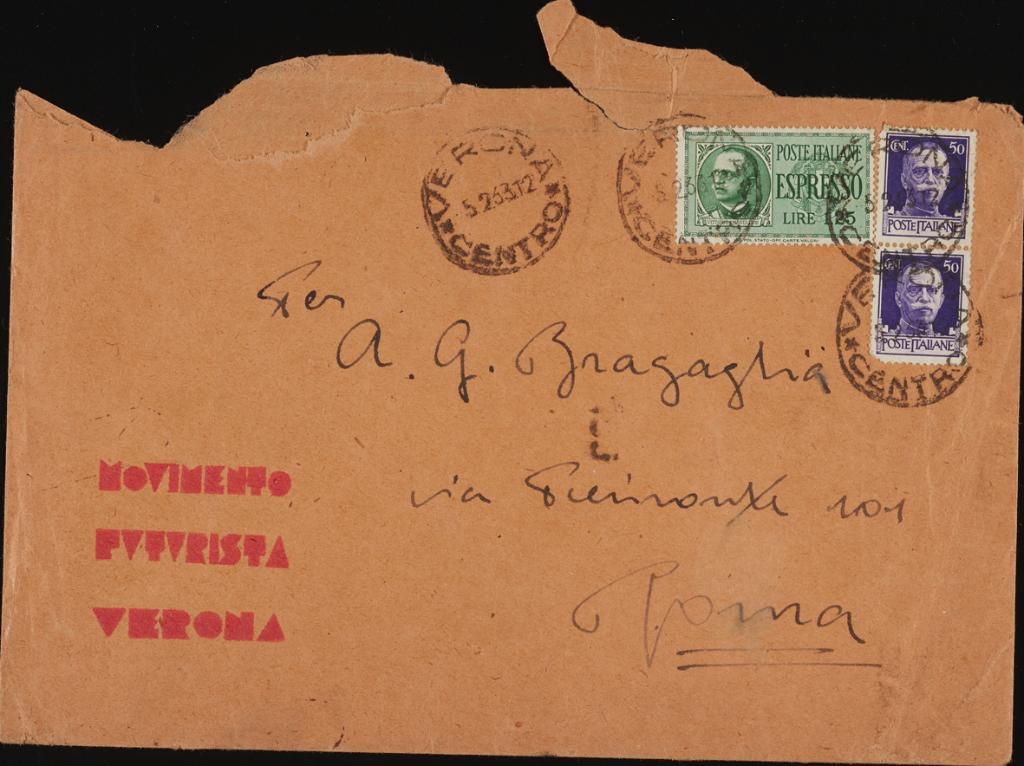 VERONA
5.2.33.12
*CENTRO*
VERONA
*CENTRO*
POSTE ITALIANE
ESPRESSO
LIRE 1,25
CENT. 50
POSTE ITALIANE
CENT. 50
POSTE ITALIANE
VERONA
*CENTRO*
Per
A. G. Bragaglia
via Piemonte 101
Roma
MOVIMENTO
FUTURISTA
VERONA